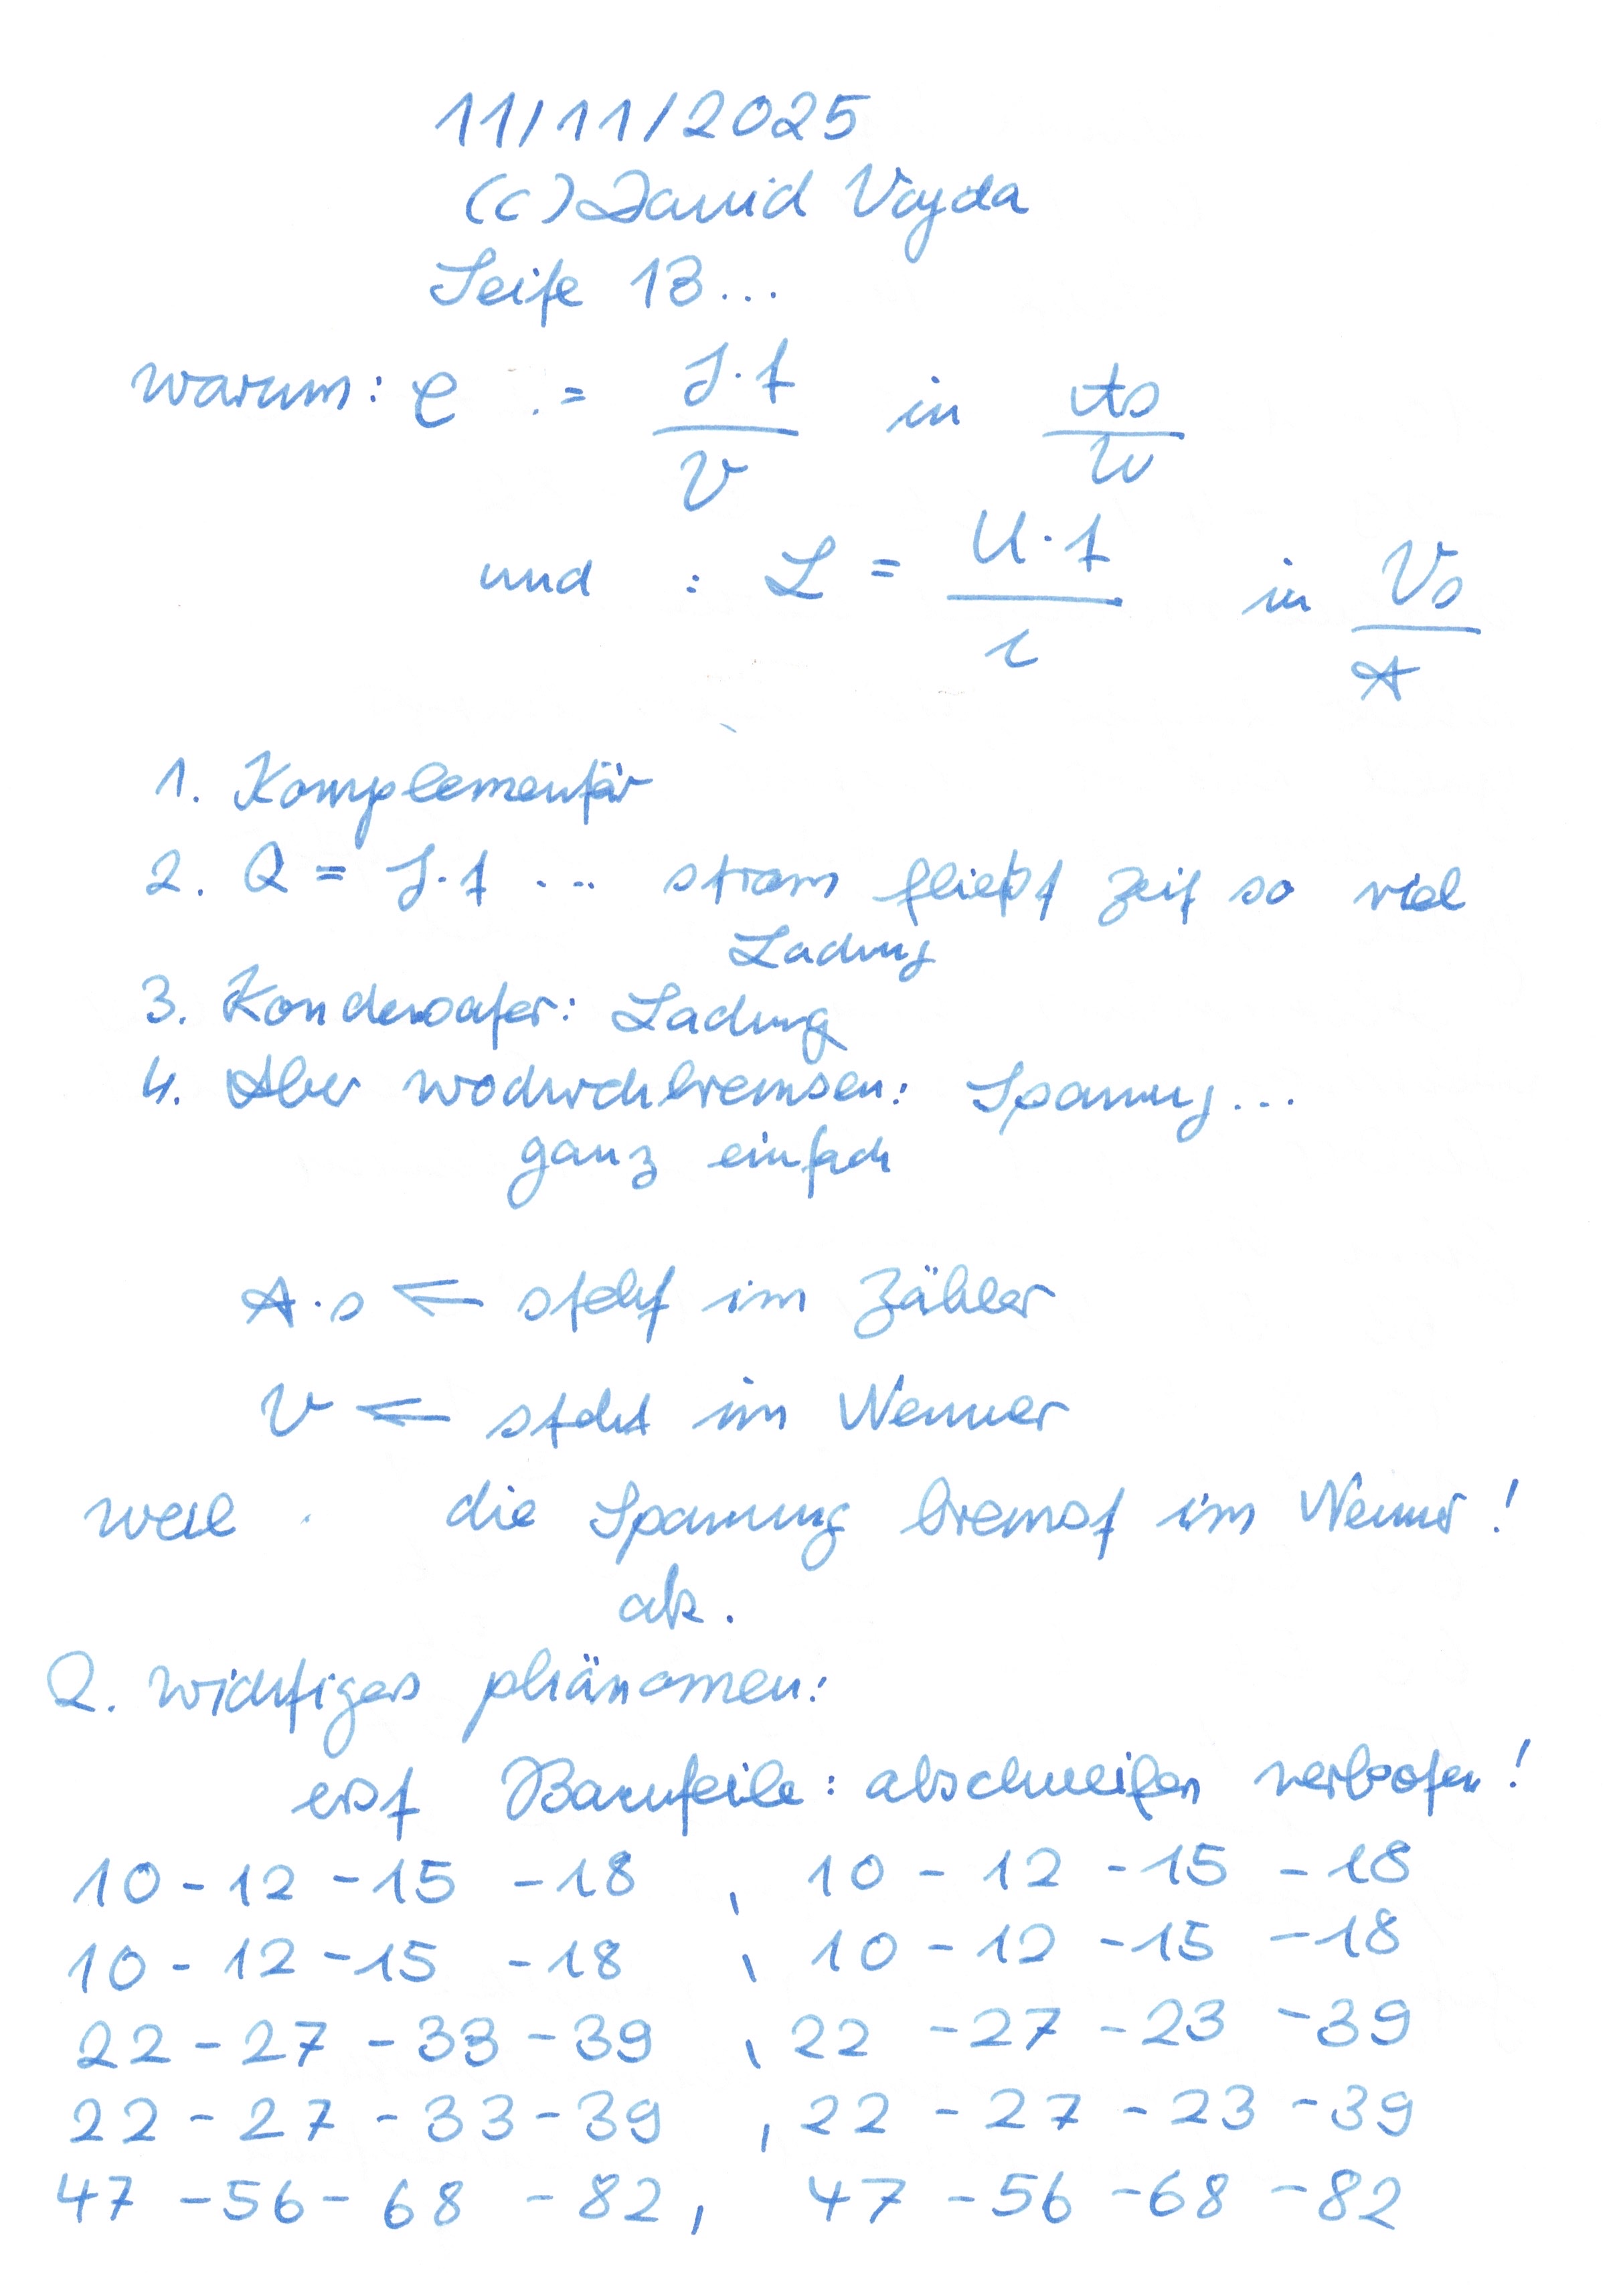 11/11/2025
(c) David Vajda
Seite 13...
warum: C := I·t / V in As / V
und : L = U·t / i in Vs / A
1. Komplementär
2. Q = I·t ... strom fließt zeit so viel
Ladung
3. Kondensater: Ladung
4. Aber wodurch bremsen: Spannung...
ganz einfach
A·s ⇐ steht im Zähler
V ⇐ steht im Nenner
weil die Spannung bremst im Nenner!
ok.
2. wichtiges phänomen:
erst Bauteile: abschweifen verboten!
10 - 12 - 15 - 18 , 10 - 12 - 15 - 18
10 - 12 - 15 - 18 , 10 - 12 - 15 - 18
22 - 27 - 33 - 39 , 22 - 27 - 23 - 39
22 - 27 - 33 - 39 , 22 - 27 - 23 - 39
47 - 56 - 68 - 82 , 47 - 56 - 68 - 82